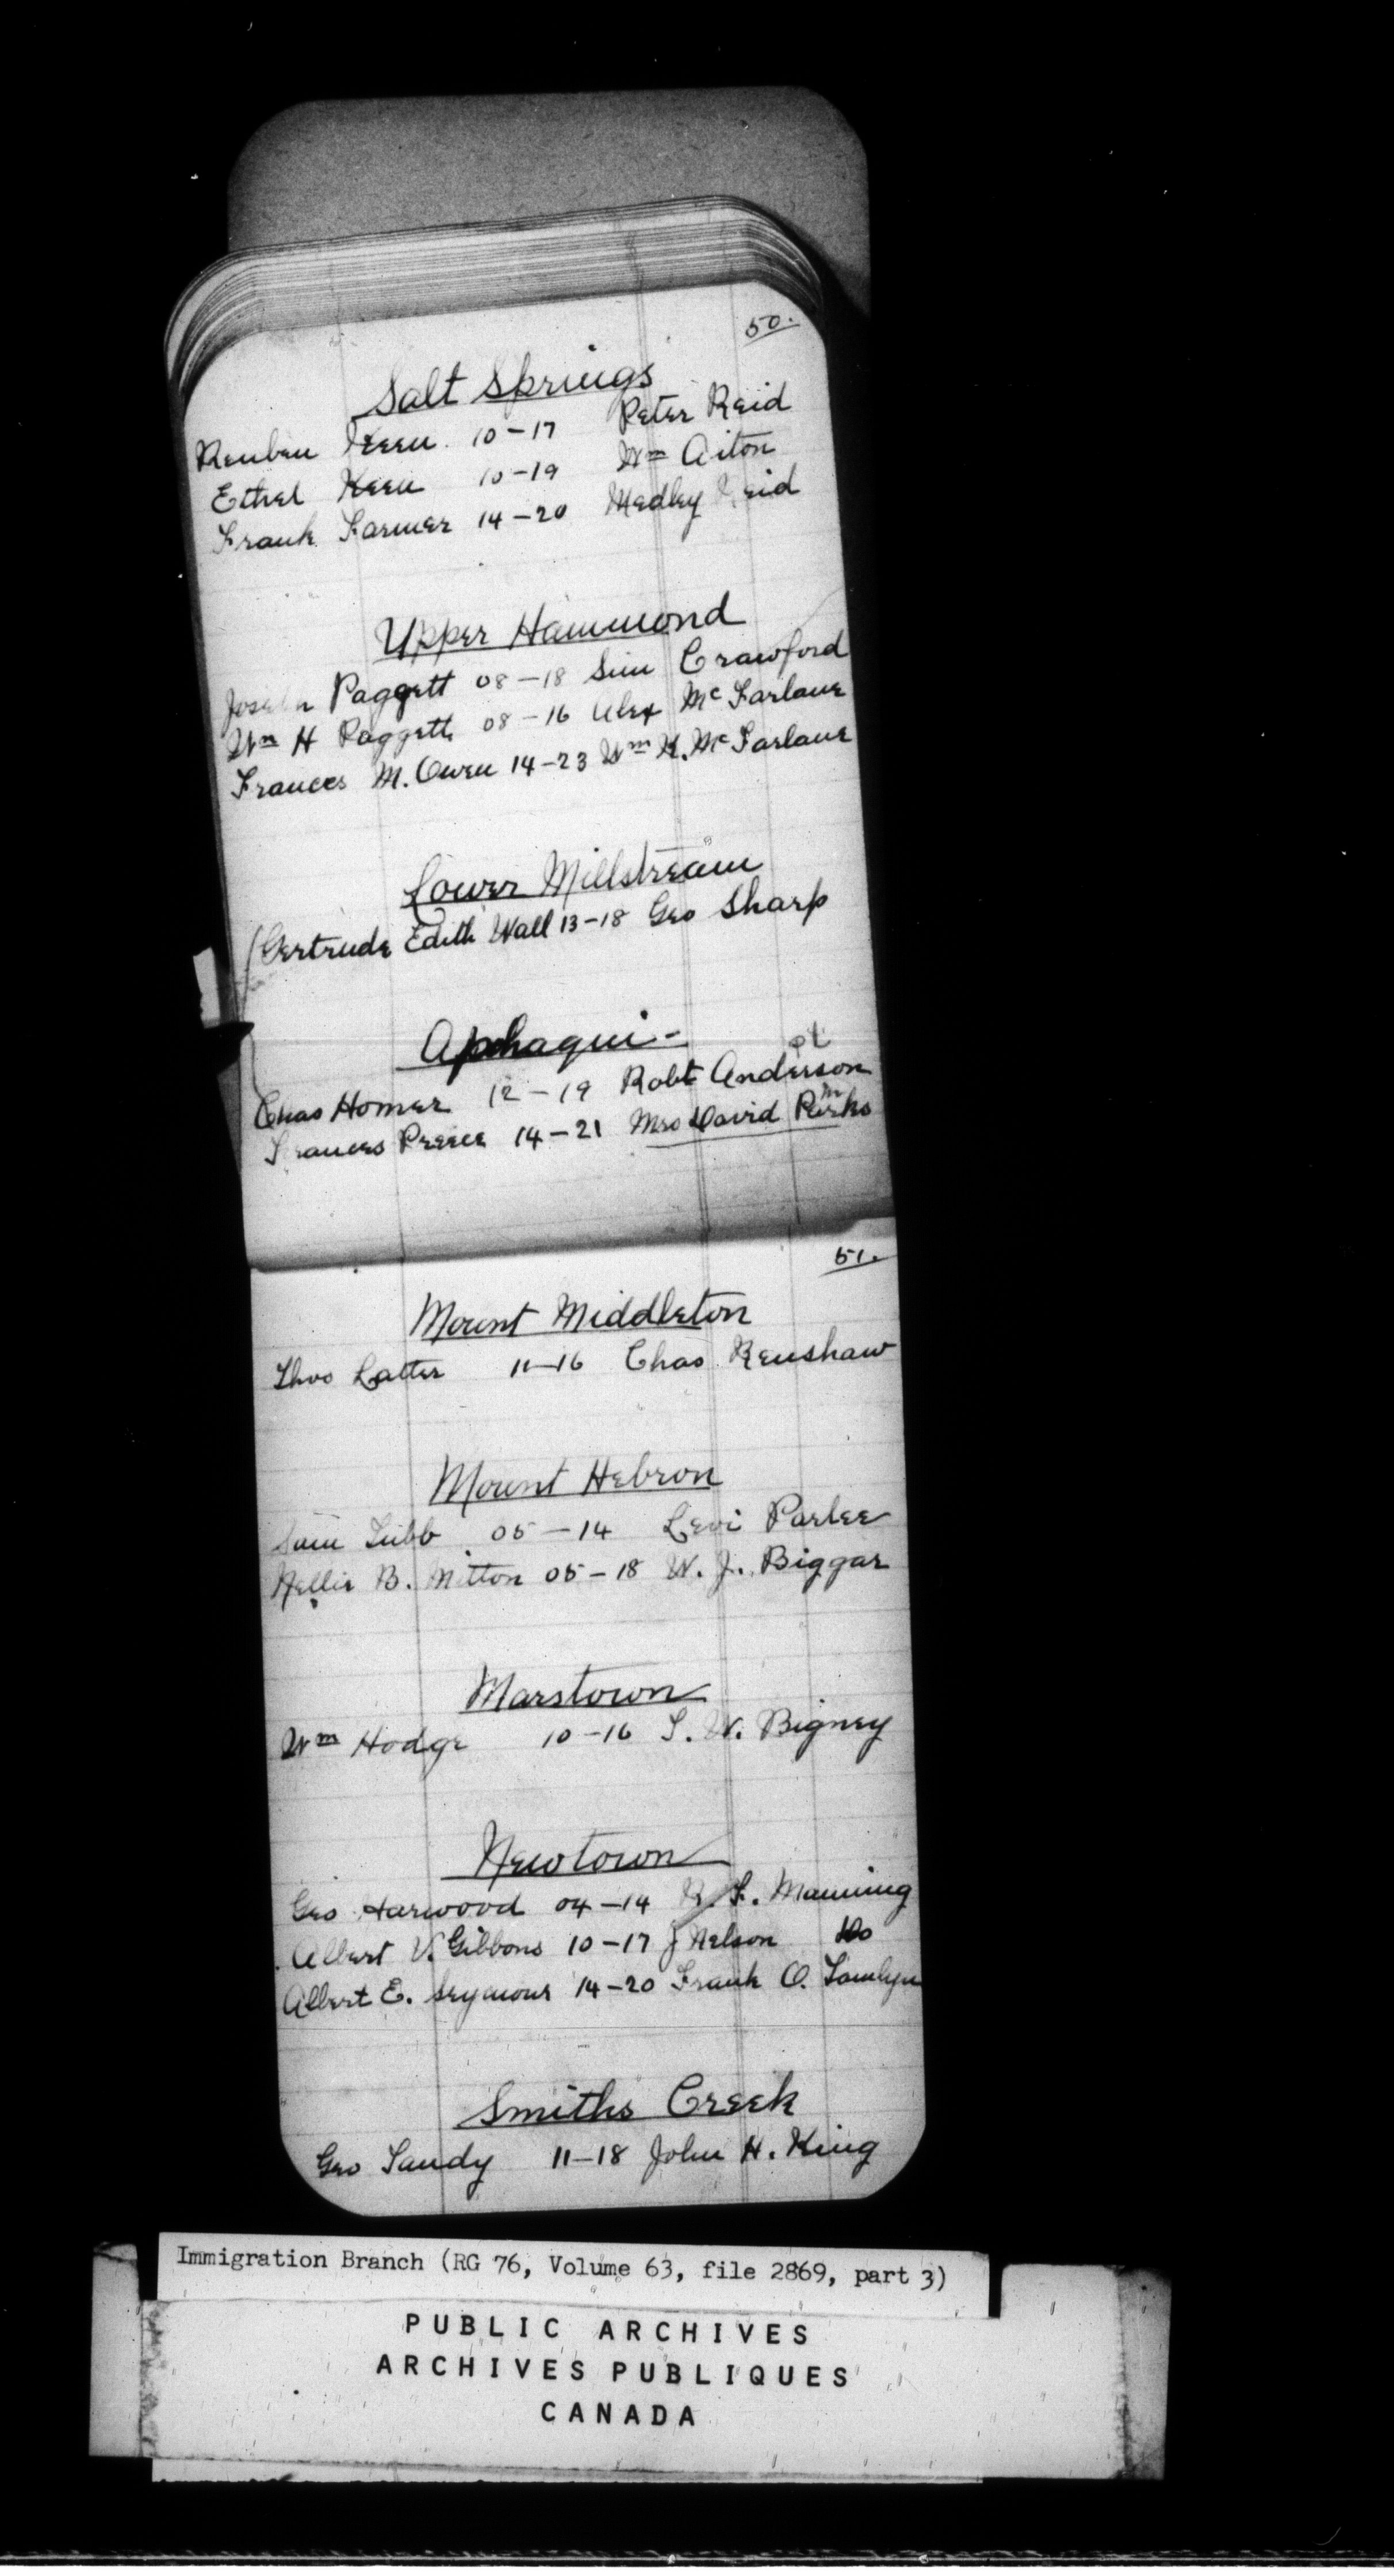 50.
Salt Springs
Reuben Keen. 10-17 Peter Reid
Ethel Keen 10-19 Wm Aiton
Frank Farmer 14-20 Medley Reid
Upper Hammond
Joseph Paggett 08-18 Sim Crawford
Wm H Paggett 08-16 Alex McFarlane
Frances M. Owen 14-23 Wm H. McFarlane
Lower Millstream
Gertrude Edith Wall 13-18 Geo Sharp
Apohaqui-
Chas Homer 12-19 Robt Anderson
Frances Preece 14-21 Mrs David Parks
51.
Mount Middleton
Thos Latter 11-16 Chas Renshaw
Mount Hebron
Sam Tubb 05-14 Levi Parlee
Nellie B. Mitton 05-18 W. J. Biggar
Marstown
Wm Hodge 10-16 S. W. Bigney
Newtown
Geo Harwood 04-14 R. F. Manning
Albert V. Gibbons 10-17 J Nelson Do
Albert E. Seymour 14-20 Frank O. Tamlyn
Smiths Creek
Geo Sandy 11-18 John H. King
Immigration Branch (RG 76, Volume 63, file 2869, part 3)
PUBLIC ARCHIVES
ARCHIVES PUBLIQUES
CANADA